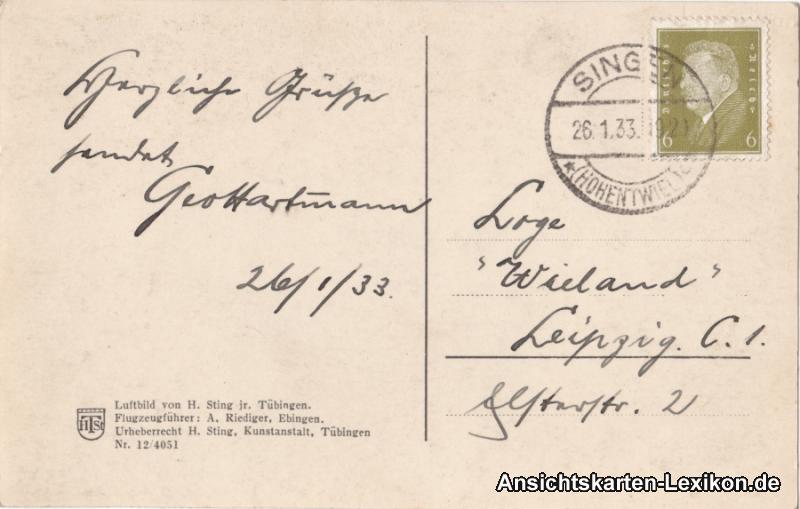 Herzliche Grüße
sendet
Geo Hartmann
26/1/33.
Luftbild von H. Sting jr. Tübingen.
Flugzeugführer: A. Riediger, Ebingen.
Urheberrecht H. Sting, Kunstanstalt, Tübingen
Nr. 12/4051
HSt
SINGEN
26.1.33.
(HOHENTWIEL)
Deutsches Reich
6 6
Loge
"Wieland"
Leipzig. C. 1.
Elsterstr. 2
Ansichtskarten-Lexikon.de